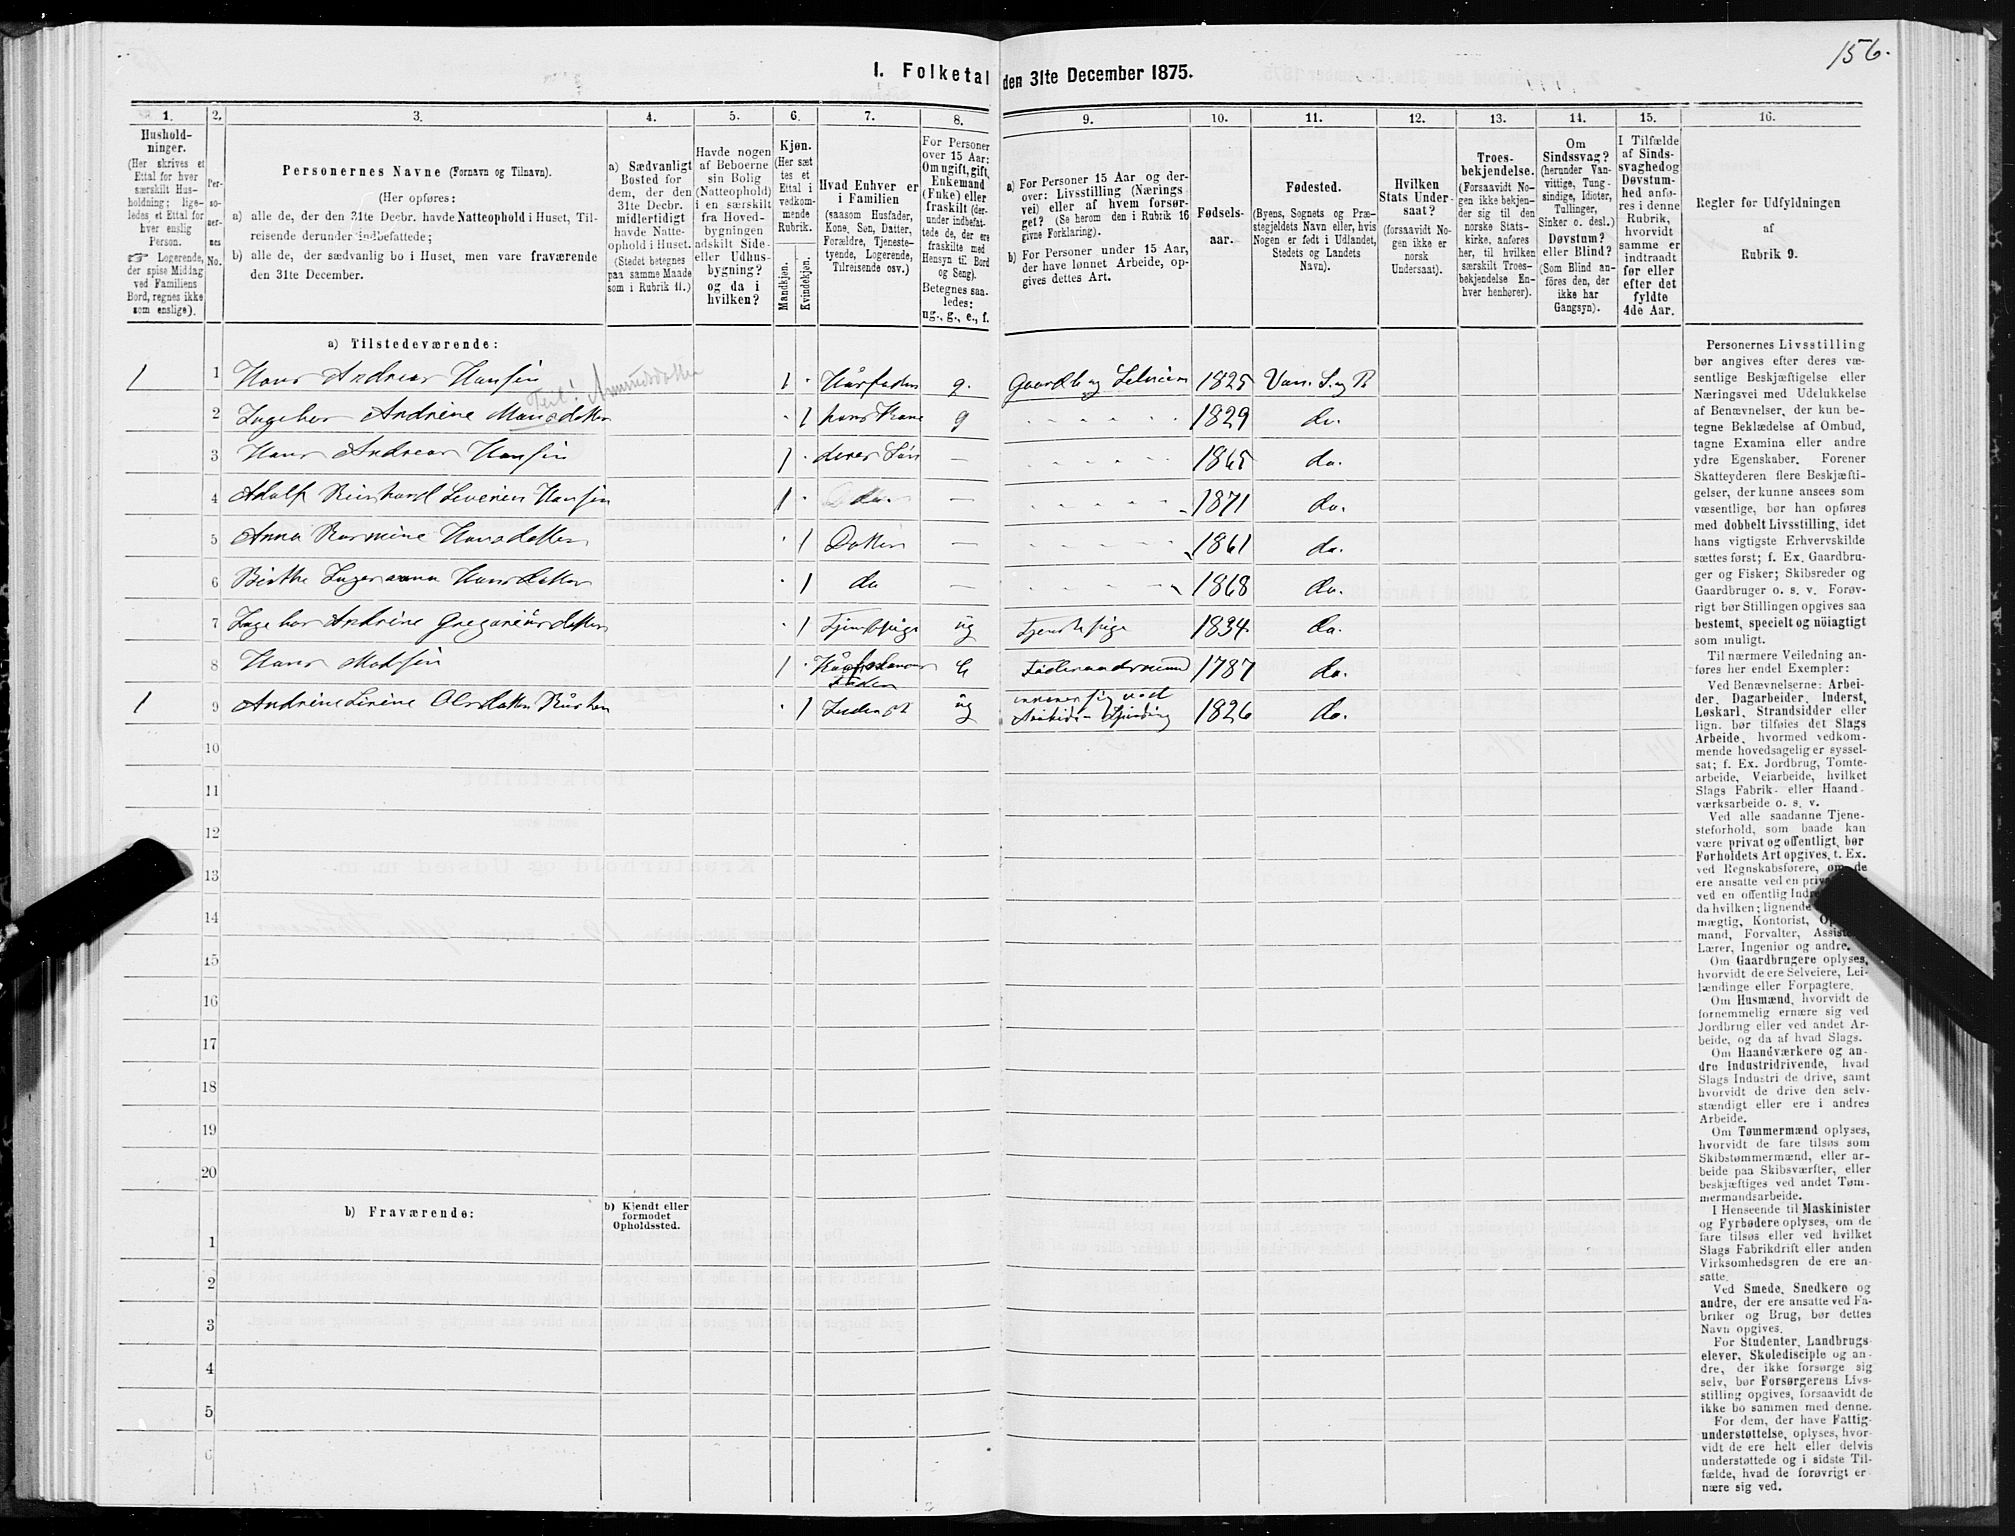 156.
I. Folketal den 31te December 1875.
1. 2. 3. 4. 5. 6. 7. 8. 9. 10. 11. 12. 13. 14. 15. 16.
Hushold-
ninger.
(Her skrives et
Ettal for hver
særskilt Hus-
holdning; lige-
ledes et Ettal for
hver enslig
Person.
☞ Logerende,
der spise Middag
ved Familiens
Bord, regnes ikke
som enslige).
Per-
so-
ner-
nes
No.
Personernes Navne (Fornavn og Tilnavn).
(Her opføres:
a) alle de, der den 31te Decbr. havde Natteophold i Huset, Til-
reisende derunder indbefattede;
b) alle de, der sædvanlig bo i Huset, men vare fraværende
den 31te December.
a) Sædvanligt
Bosted for
dem, der den
31te Decbr.
midlertidigt
havde Natte-
ophold i Huset.
(Stedet betegnes
paa samme Maade
som i Rubrik 11.)
Havde nogen
af Beboerne
sin Bolig
(Natteophold)
i en særskilt
fra Hoved-
bygningen
adskilt Side-
eller Udhus-
bygning?
og da i
hvilken?
Kjøn.
(Her sæt
tes et
Ettal i
vedkom-
mende
Rubrik.
Mandkjøn.
Kvindekjøn.
Hvad Enhver er
i Familien
(saasom Husfader,
Kone, Søn, Datter,
Forældre, Tjeneste-
tyende, Logerende,
Tilreisende osv.)
For Personer
over 15 Aar:
Om ugift, gift,
Enkemand
(Enke) eller
fraskilt (der-
under indbefat-
tede de, der ere
fraskilte med
Hensyn til Bord
og Seng).
Betegnes saa-
ledes:
ug., g., e., f.
a) For Personer 15 Aar og der-
over: Livsstilling (Nærings
vei) eller af hvem forsør-
get? (Se herom den i Rubrik 16
givne Forklaring).
b) For Personer under 15 Aar,
der have lønnet Arbeide, op-
gives dettes Art.
Fødsels-
aar.
Fødested.
(Byens, Sognets og Præ-
stegjeldets Navn eller, hvis
Nogen er født i Udlandet,
Stedets og Landets
Navn).
Hvilken
Stats Under-
saat?
(forsaavidt No-
gen ikke er
norsk
Undersaat).
Troes-
bekjendelse.
(Forsaavidt No-
gen ikke bekjen-
der sig til den
norske Stats-
kirke, anføres
her, til hvilken
særskilt Troes-
bekjendelse En-
hver henhører).
Om
Sindssvag?
(herunder Van-
vittige, Tung-
sindige, Idioter,
Tullinger,
Sinker o. desl.)
Døvstum?
eller Blind?
(Som Blind an-
føres den, der
ikke har
Gangsyn).
I Tilfælde
af Sinds-
svaghed og
Døvstum-
hed anfø-
res i denne
Rubrik,
hvorvidt
samme er
indtraadt
før eller
efter det
fyldte
4de Aar.
Regler for Udfyldningen
af
Rubrik 9.
a) Tilstedeværende:
1 1 Hans Andreas Hansen 1 Husfader g. Gaardb og Selveier 1825 Vans S. og P.
Amundsdatter
2 Ingebor Andrine Mansdatter 1 hans Kone g 1829 do.
3 Hans Andreas Hansen 1 deres Søn — 1865 do.
4 Adolf Reinhard Severin Hansen 1 do. — 1871 do.
5 Anna Rasmine Hansdatter 1 Datter — 1861 do.
6 Birthe Ingeranna Hansdatter 1 do — 1868 do.
7 Ingebor Andrine Gregoriusdatter 1 Tjenestepige ug Tjenestepige 1834 do.
8 Hans Madsen 1 Fader e Føderaadsmand 1787 do.
1 9 Andrine Sirine Olsdatter 1 Inderst ug ernærer sig ved
Arbeide 1826 do.
10
11
12
13
14
15
16
17
18
19
20
b) Fraværende:
b) Kjendt eller
formodet
Opholdssted.
1
2
3
4
5
6
Personernes Livsstilling
bør angives efter deres væ-
sentlige Beskjæftigelse eller
Næringsvei med Udelukkelse
af Benævnelser, der kun be-
tegne Beklædelse af Ombud,
tagne Examina eller andre
ydre Egenskaber. Forener
Skatteyderen flere Beskjæfti-
gelser, der kunne ansees som
væsentlige, bør han opføres
med dobbelt Livsstilling, idet
hans vigtigste Erhvervskilde
sættes først; f. Ex. Gaardbru-
ger og Fisker; Skibsreder og
Gaardbruger o. s. v. Forøv-
rigt bør Stillingen opgives saa
bestemt, specielt og nöiagtigt
som muligt.
Til nærmere Veiledning an-
føres her endel Exempler:
Ved Benævnelserne: Arbei-
der, Dagarbeider, Inderst,
Løskarl, Strandsidder eller
lign. bør tilføies det Slags
Arbeide, hvormed vedkom-
mende hovedsagelig er syssel-
sat; f. Ex. Jordbrug, Tomte-
arbeide, Veiarbeide, hvilket
Slags Fabrik- eller Haand-
værksarbeide o. s. v.
Ved alle saadanne Tjene-
steforhold, som baade kan
være privat og offentligt, bør
Forholdets Art opgives, t. Ex.
ved Regnskabsførere, om de
ere ansatte ved en
ved en offentlig
da hvilken; lignende
mægtig, Kontorist,
mand, Forvalter,
Lærer, Ingeniør og andre.
Om Gaardbrugere oplyses,
hvorvidt de ere Selveiere, Lei-
lændinge eller Forpagtere.
Om Husmænd, hvorvidt de
fornemmelig ernære sig ved
Jordbrug eller ved andet Ar-
beide, og da af hvad Slags.
Om Haandværkere og an-
dre Industridrivende, hvad
Slags Industri de drive, samt
hvorvidt de drive den selv-
stændigt eller ere i andres
Arbeide.
Om Tømmermænd oplyses,
hvorvidt de fare tilsøs som
Skibstømmermænd, eller ar-
beide paa Skibsværfter, eller
beskjæftiges ved andet Tøm-
mermandsarbeide.
I Henseende til Maskinister
og Fyrbødere oplyses, om de
fare tilsøs eller ved hvilket
Slags Fabrikdrift eller anden
Virksomhedsgren de ere an-
satte.
Ved Smede, Snedkere og
andre, der ere ansatte ved Fa-
briker og Brug, bør dettes
Navn opgives.
For Studenter, Landbrugs-
elever, Skoledisciple og an-
dre, der ikke forsørge sig
selv, bør Forsørgerens Livs-
stilling opgives, forsaavidt de
ikke bo sammen med denne.
For dem, der have Fattig-
understøttelse, oplyses, hvor-
vidt de ere helt eller delvis
understøttede og i sidste Til-
fælde, hvad de forøvrigt er-
nære sig ved.